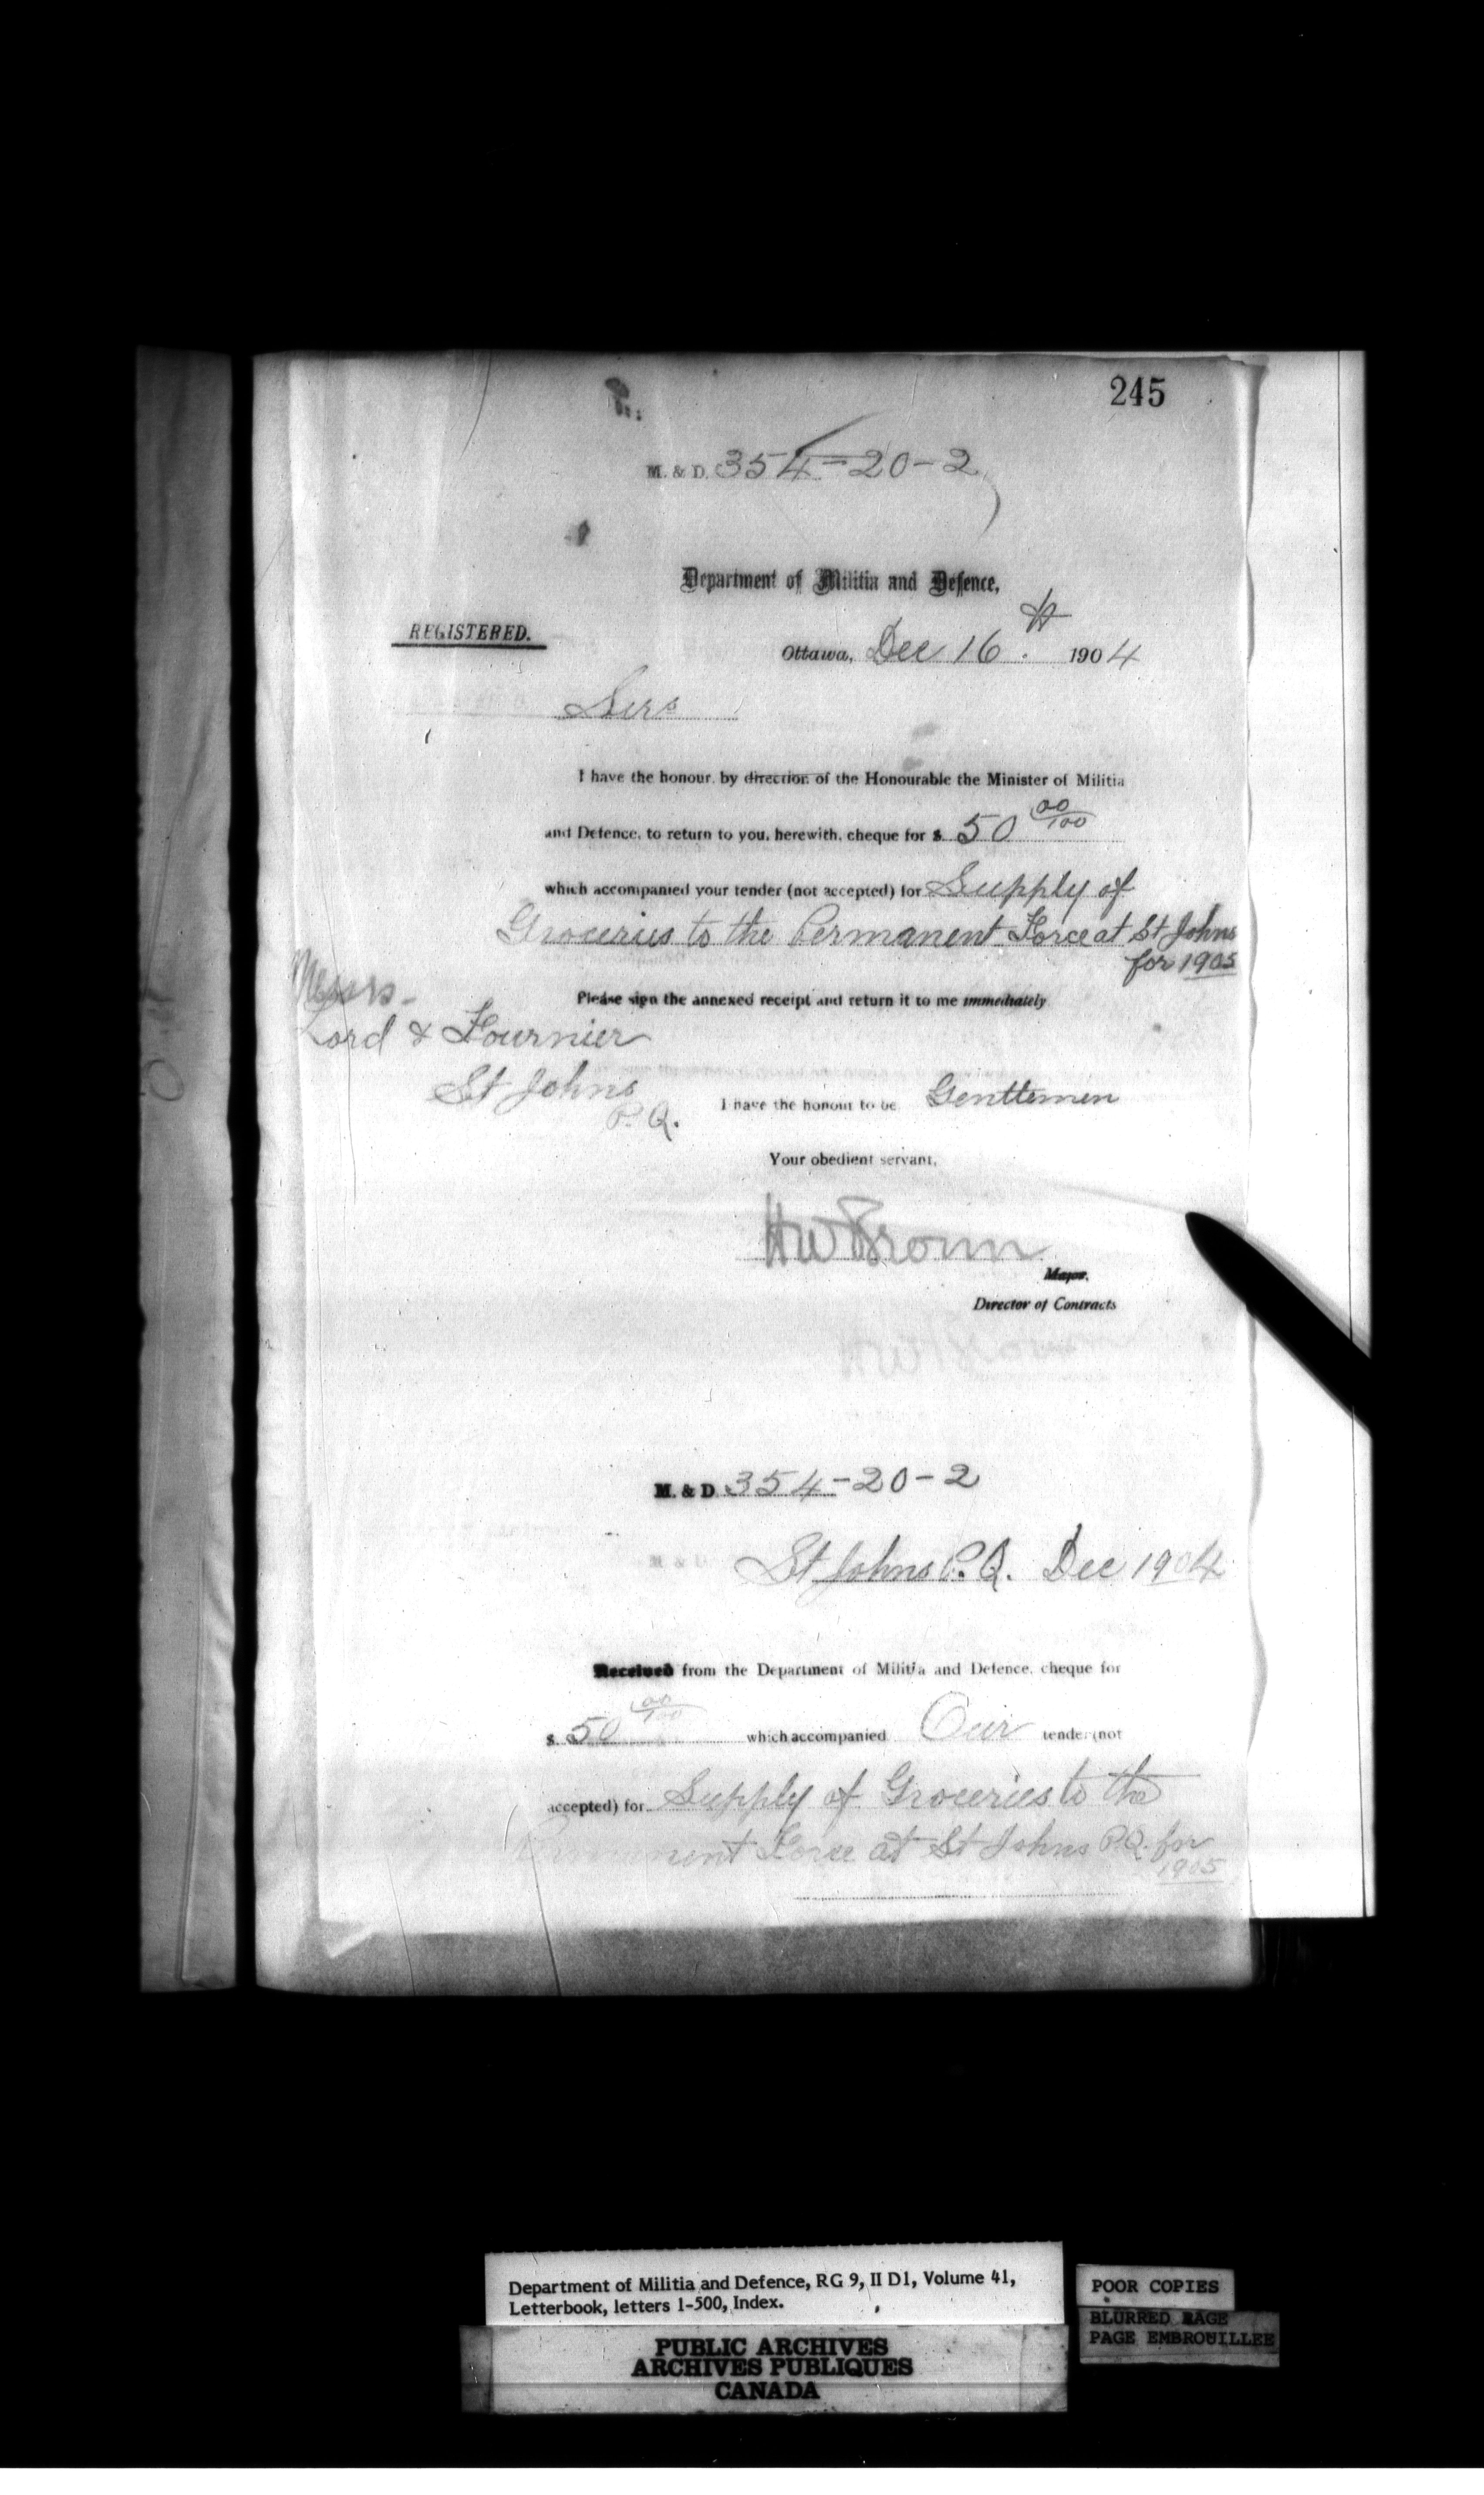 245
M. & D. 354-20-2
Department of Militia and Defence,
REGISTERED.
Ottawa, Dec 16th. 1904
Sirs
I have the honour, by direction of the Honourable the Minister of Militia
and Defence, to return to you, herewith, cheque for $ 50 00/100
which accompanied your tender (not accepted) for Supply of
Groceries to the Permanent Force at St Johns
for 1905
Please sign the annexed receipt and return it to me immediately
Messrs.
Lord & Fournier
St Johns
P.Q.
I have the honour to be Gentlemen
Your obedient servant,
HW Brown
Major.
Director of Contracts
M. & D. 354-20-2
St Johns P.Q. Dec 1904
Received from the Department of Militia and Defence, cheque for
$ 50 00/100 which accompanied Our tender (not
accepted) for Supply of Groceries to the
Permanent Force at St Johns P.Q. for
1905
Department of Militia and Defence, RG 9, II D1, Volume 41,
Letterbook, letters 1-500, Index.
PUBLIC ARCHIVES
ARCHIVES PUBLIQUES
CANADA
POOR COPIES
BLURRED PAGE
PAGE EMBROUILLEE